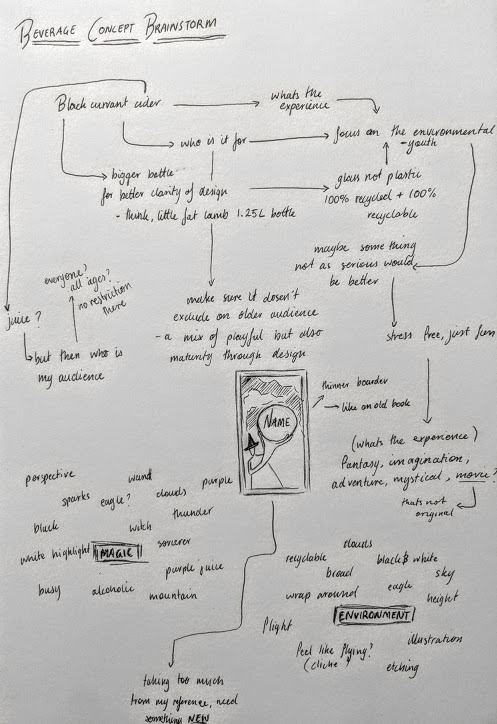 BEVERAGE CONCEPT BRAINSTORM
Blackcurrant cider
whats the
experience
who is it for
focus on the environmental
- youth
bigger bottle
for better clarity of design
- think, little fat lamb 1.25L bottle
glass not plastic
100% recycled + 100%
recyclable
maybe something
not as serious would
be better
everyone?
all ages?
no restriction
there
juice?
but then who is
my audience
make sure it doesn't
exclude an older audience
- a mix of playful but also
maturity through design
stress free, just fun
NAME
thinner boarder
like an old book
(whats the experience)
Fantasy, imagination,
adventure, mystical, movie?
thats not
original
perspective
wand
purple
sparks
eagle?
clouds
thunder
black
witch
white highlight
MAGIC
sorcerer
purple juice
busy
alcoholic
mountain
clouds
recyclable
black & white
broad
sky
wrap around
eagle
height
ENVIRONMENT
flight
feel like flying?
(cliche?)
illustration
etching
taking too much
from my reference, need
something NEW